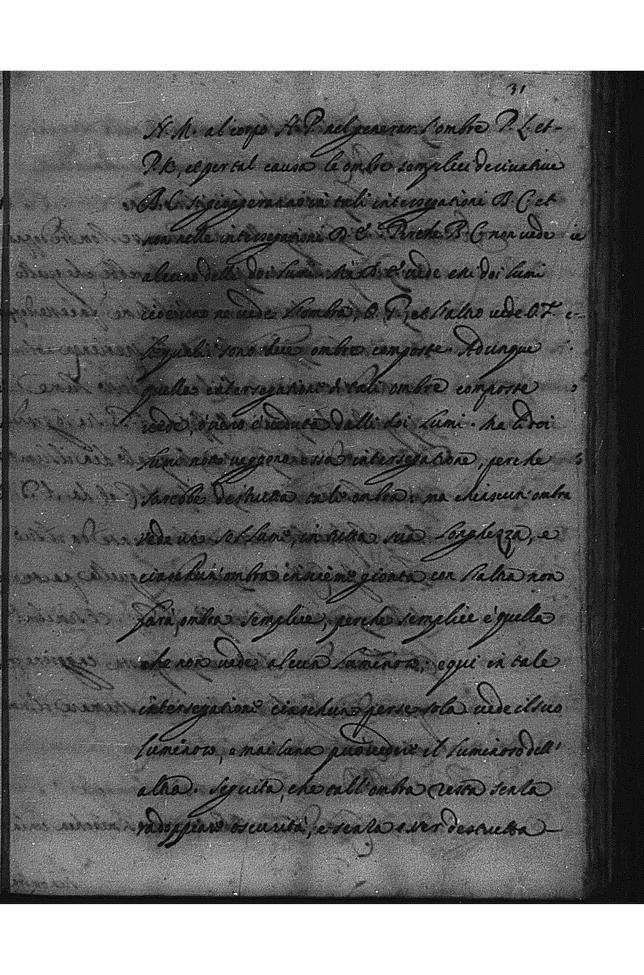 31
N. M. al corpo N. P. nel generar l'ombre P. L. et
P. K., et per tal causa le ombre semplici derivative
B. L. si in tali intersegationi B. C. et
non nelle intersegationi D. E. Perche B. C. non vede
alcuno delli doi lumi. Mà D. E. vede essi doi lumi
cioè uno ne vede l'ombra, O. P., et l'altro vede O. F.
le quali sono due ombre composte. Adunque
quelle intersegationi di tali ombre composte
vede, o vero è veduta dalli doi lumi. Ma li doi
lumi non veggono essa intersegatione, perche
sarebbe destrutta tale ombra. ma chiascun'ombra
veda un sol lume, in tutta sua longhezza, e
ciaschun'ombra insieme gionta con l'altra non
sarà, ombra semplice, perche semplice è quella
che non vede alcun luminoso; e qui in tale
intersegatione ciaschun per se sola vede il suo
luminoso, e mai l'una può vedere il luminoso dell'
altra. Seguita, che tall'ombra resta senza
radoppiare oscurità, e senza esser destrutta